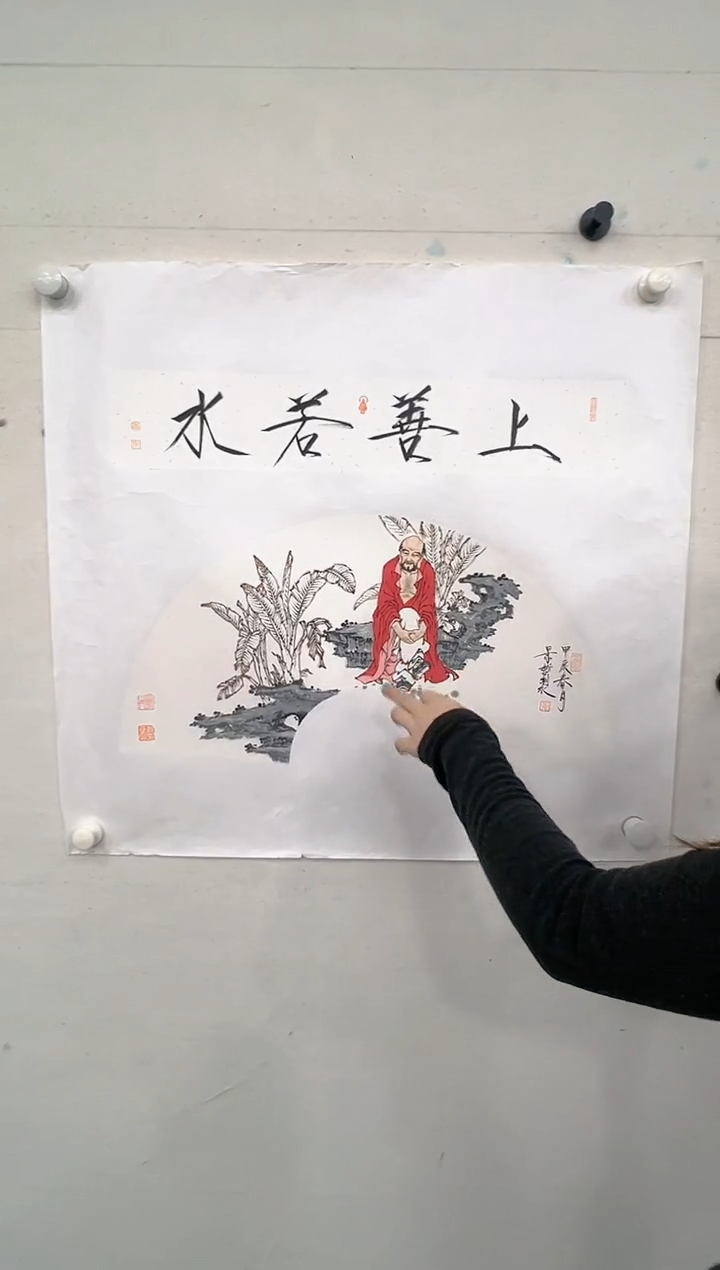 上善若水
甲辰春月